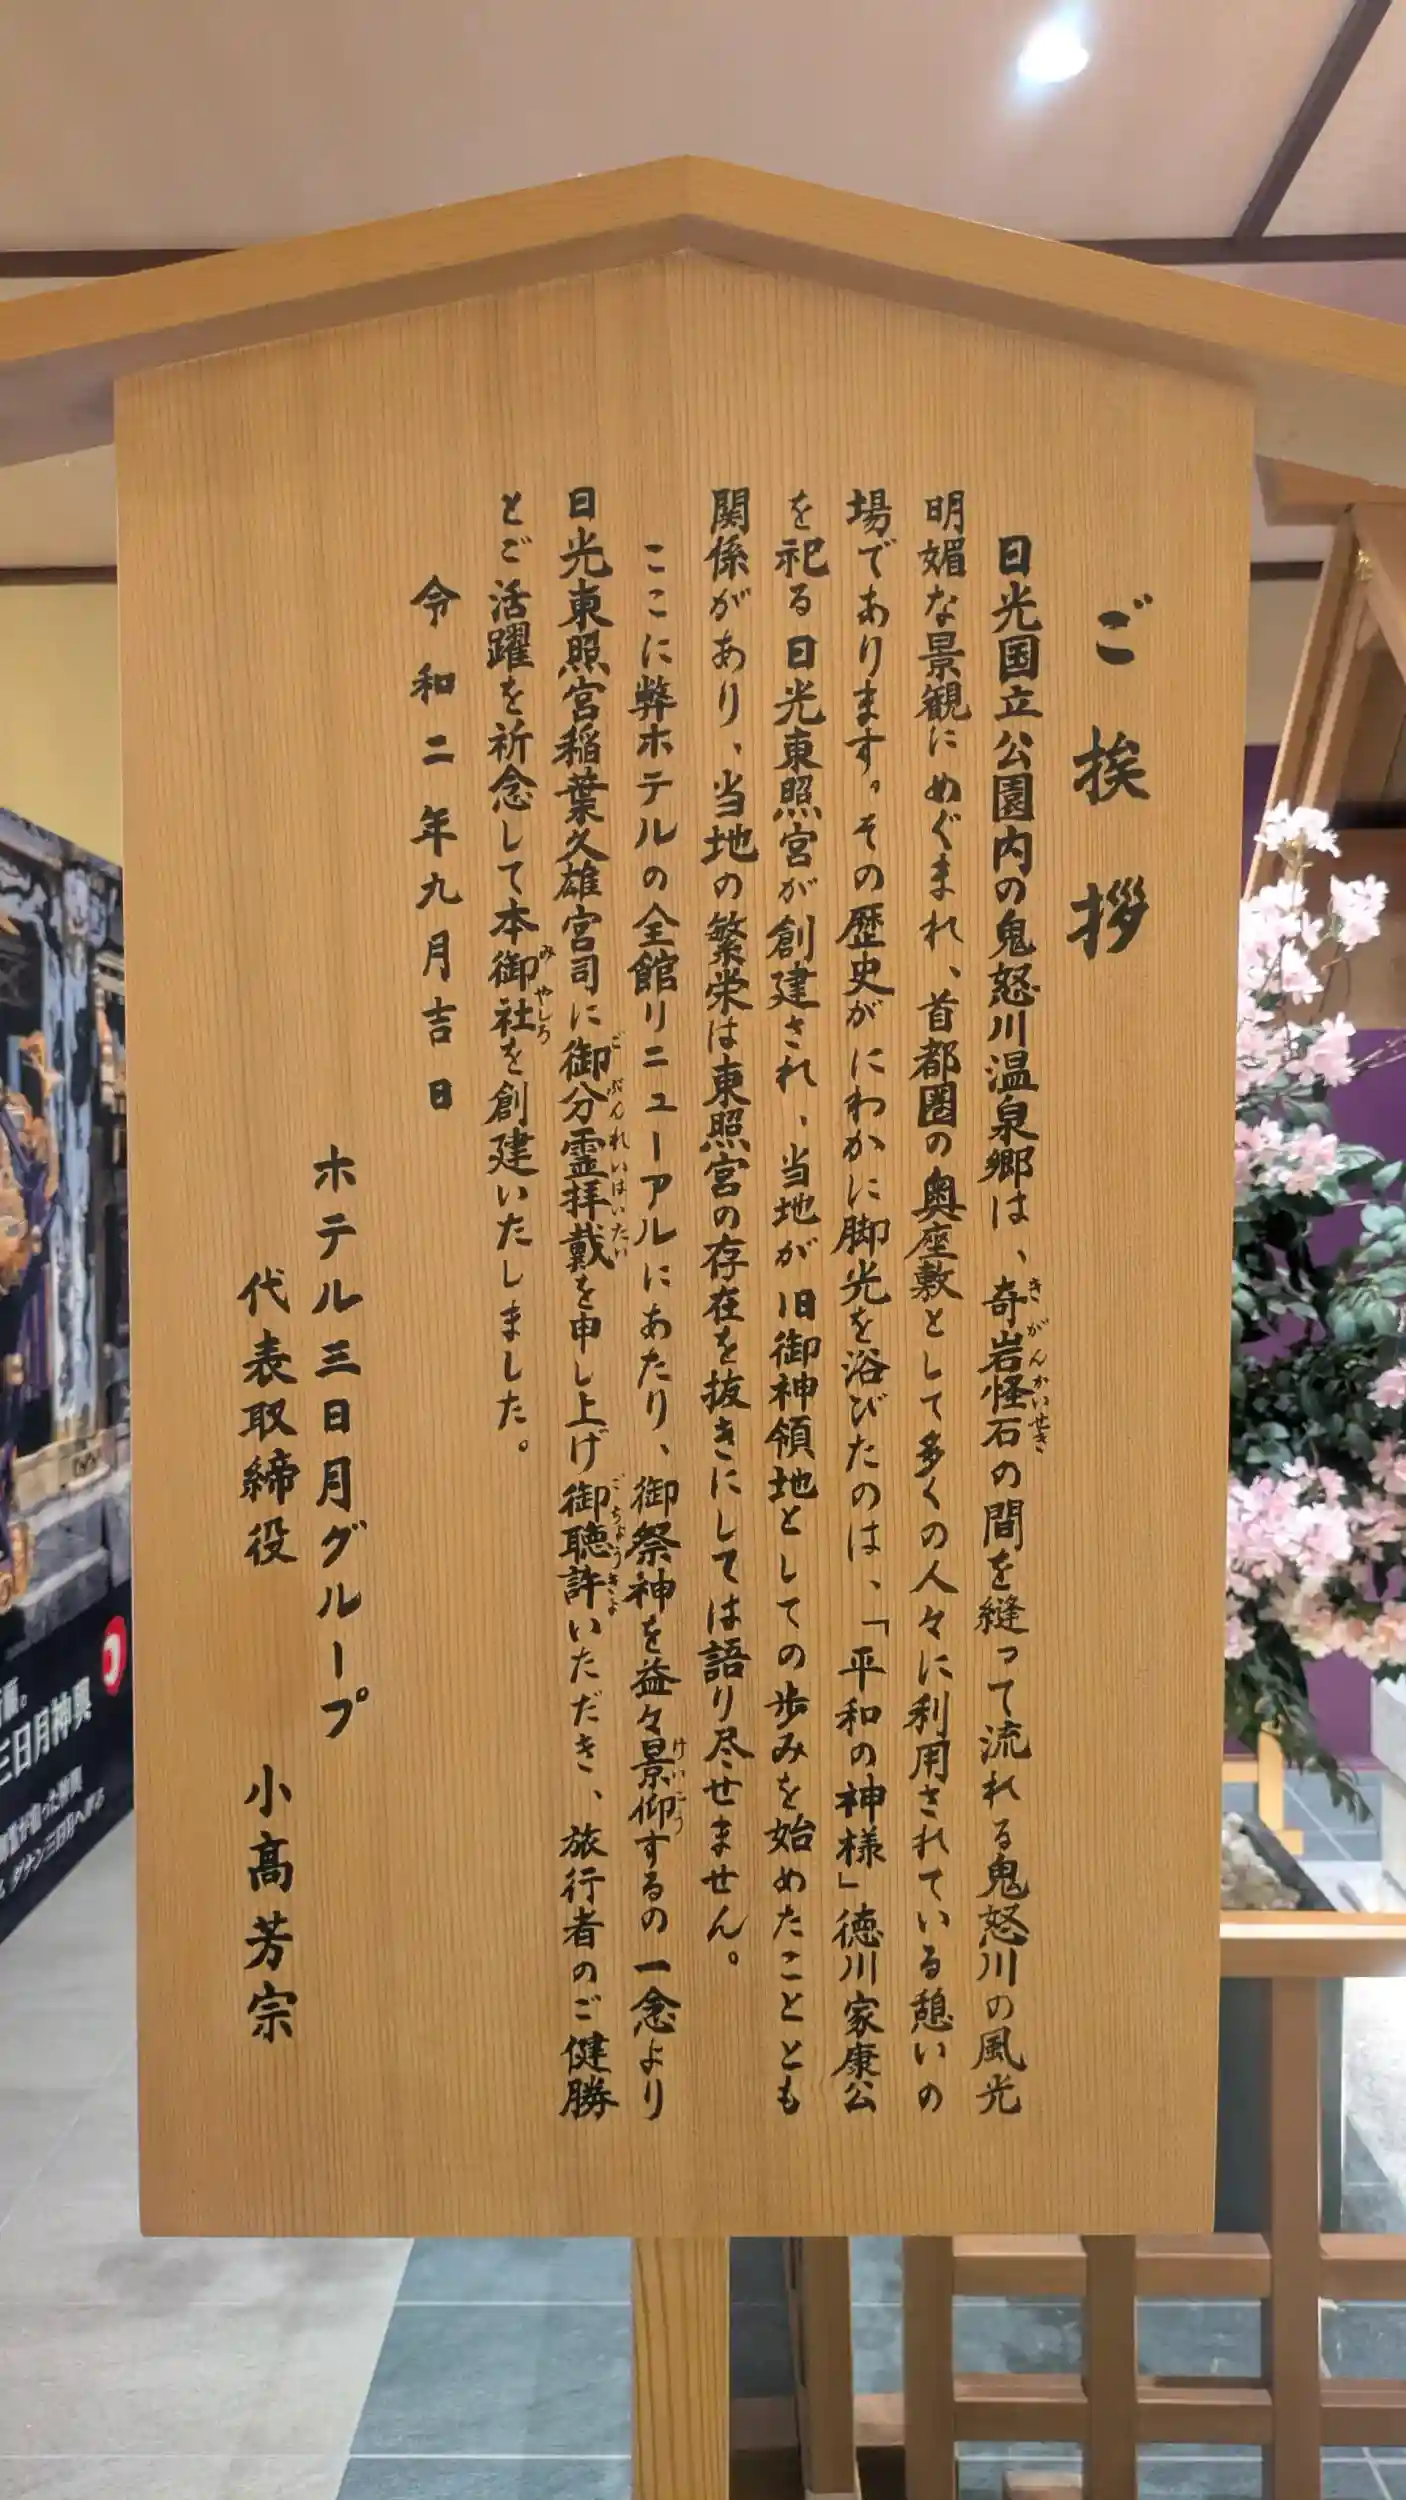 ご挨拶
日光国立公園内の鬼怒川温泉郷は、奇岩怪石の間を縫って流れる鬼怒川の風光
きがんかいせき
明媚な景観にめぐまれ、首都圏の奥座敷として多くの人々に利用されている憩いの
場であります。その歴史がにわかに脚光を浴びたのは、「平和の神様」徳川家康公
を祀る日光東照宮が創建され、当地が旧御神領地としての歩みを始めたこととも
関係があり、当地の繁栄は東照宮の存在を抜きにしては語り尽せません。
ここに弊ホテルの全館リニューアルにあたり、御祭神を益々景仰するの一念より
けいごう
日光東照宮稲葉久雄宮司に御分霊拝戴を申し上げ御聴許いただき、旅行者のご健勝
ごぶんれいはいたい
ごちょうきょ
とご活躍を祈念して本御社を創建いたしました。
みやしろ
令和二年九月吉日
ホテル三日月グループ
代表取締役 小高芳宗
三日月神輿
ダナン三日月へ渡る